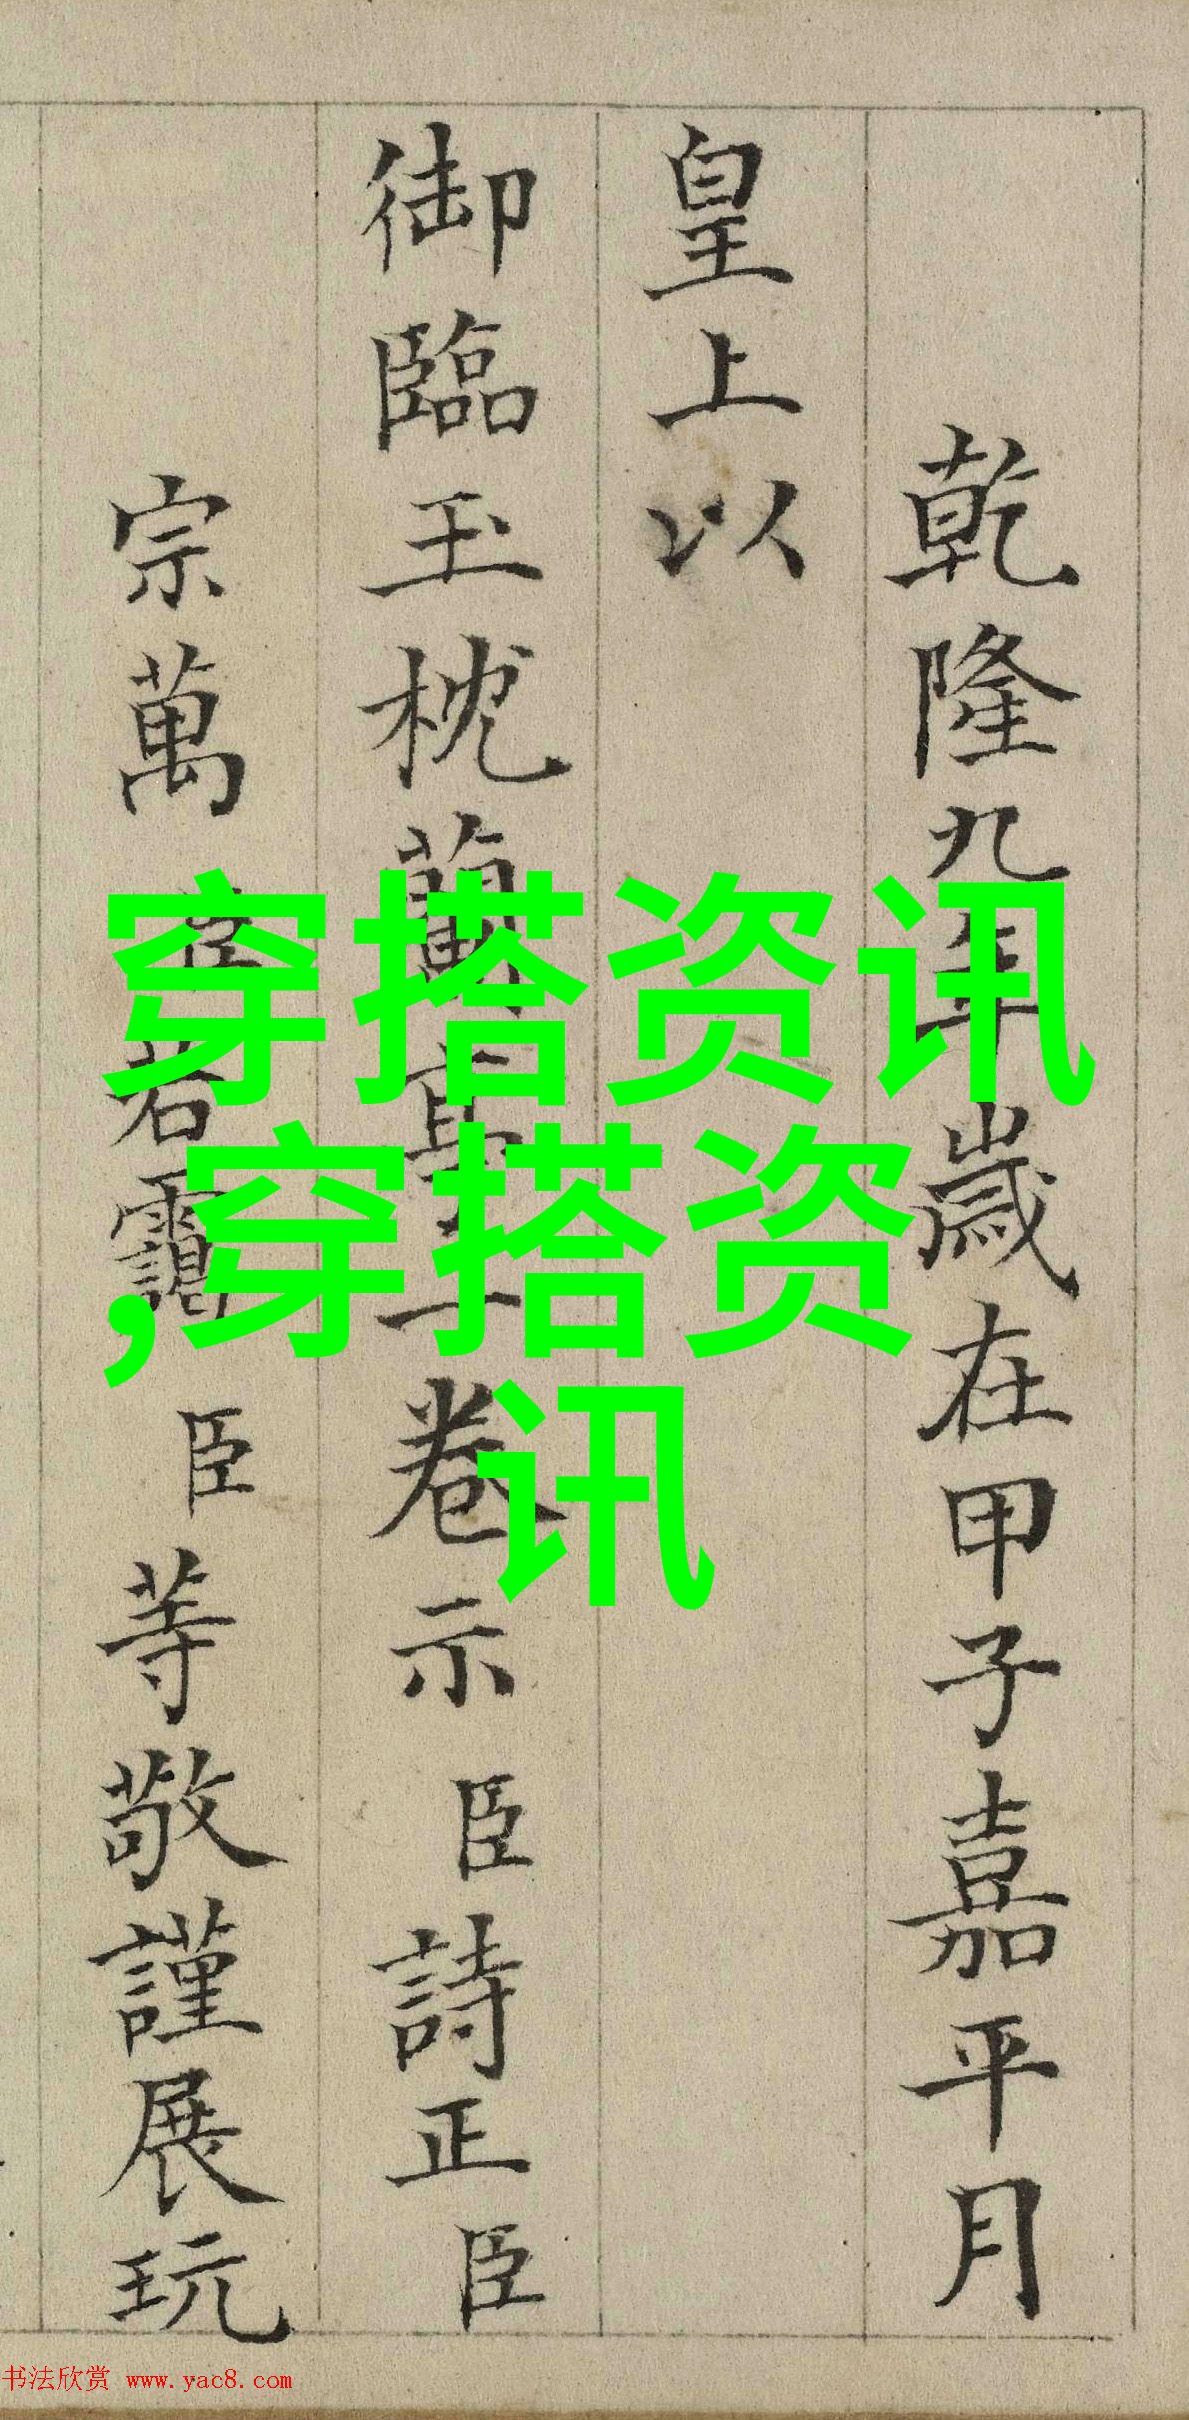 乾隆九年歲在甲子嘉平月
皇上以
御臨玉枕蘭亭一卷示臣詩正臣
宗萬臣若靄臣等敬謹展玩
穿搭资讯
,穿搭资
讯
书法欣赏 www.yac8.com